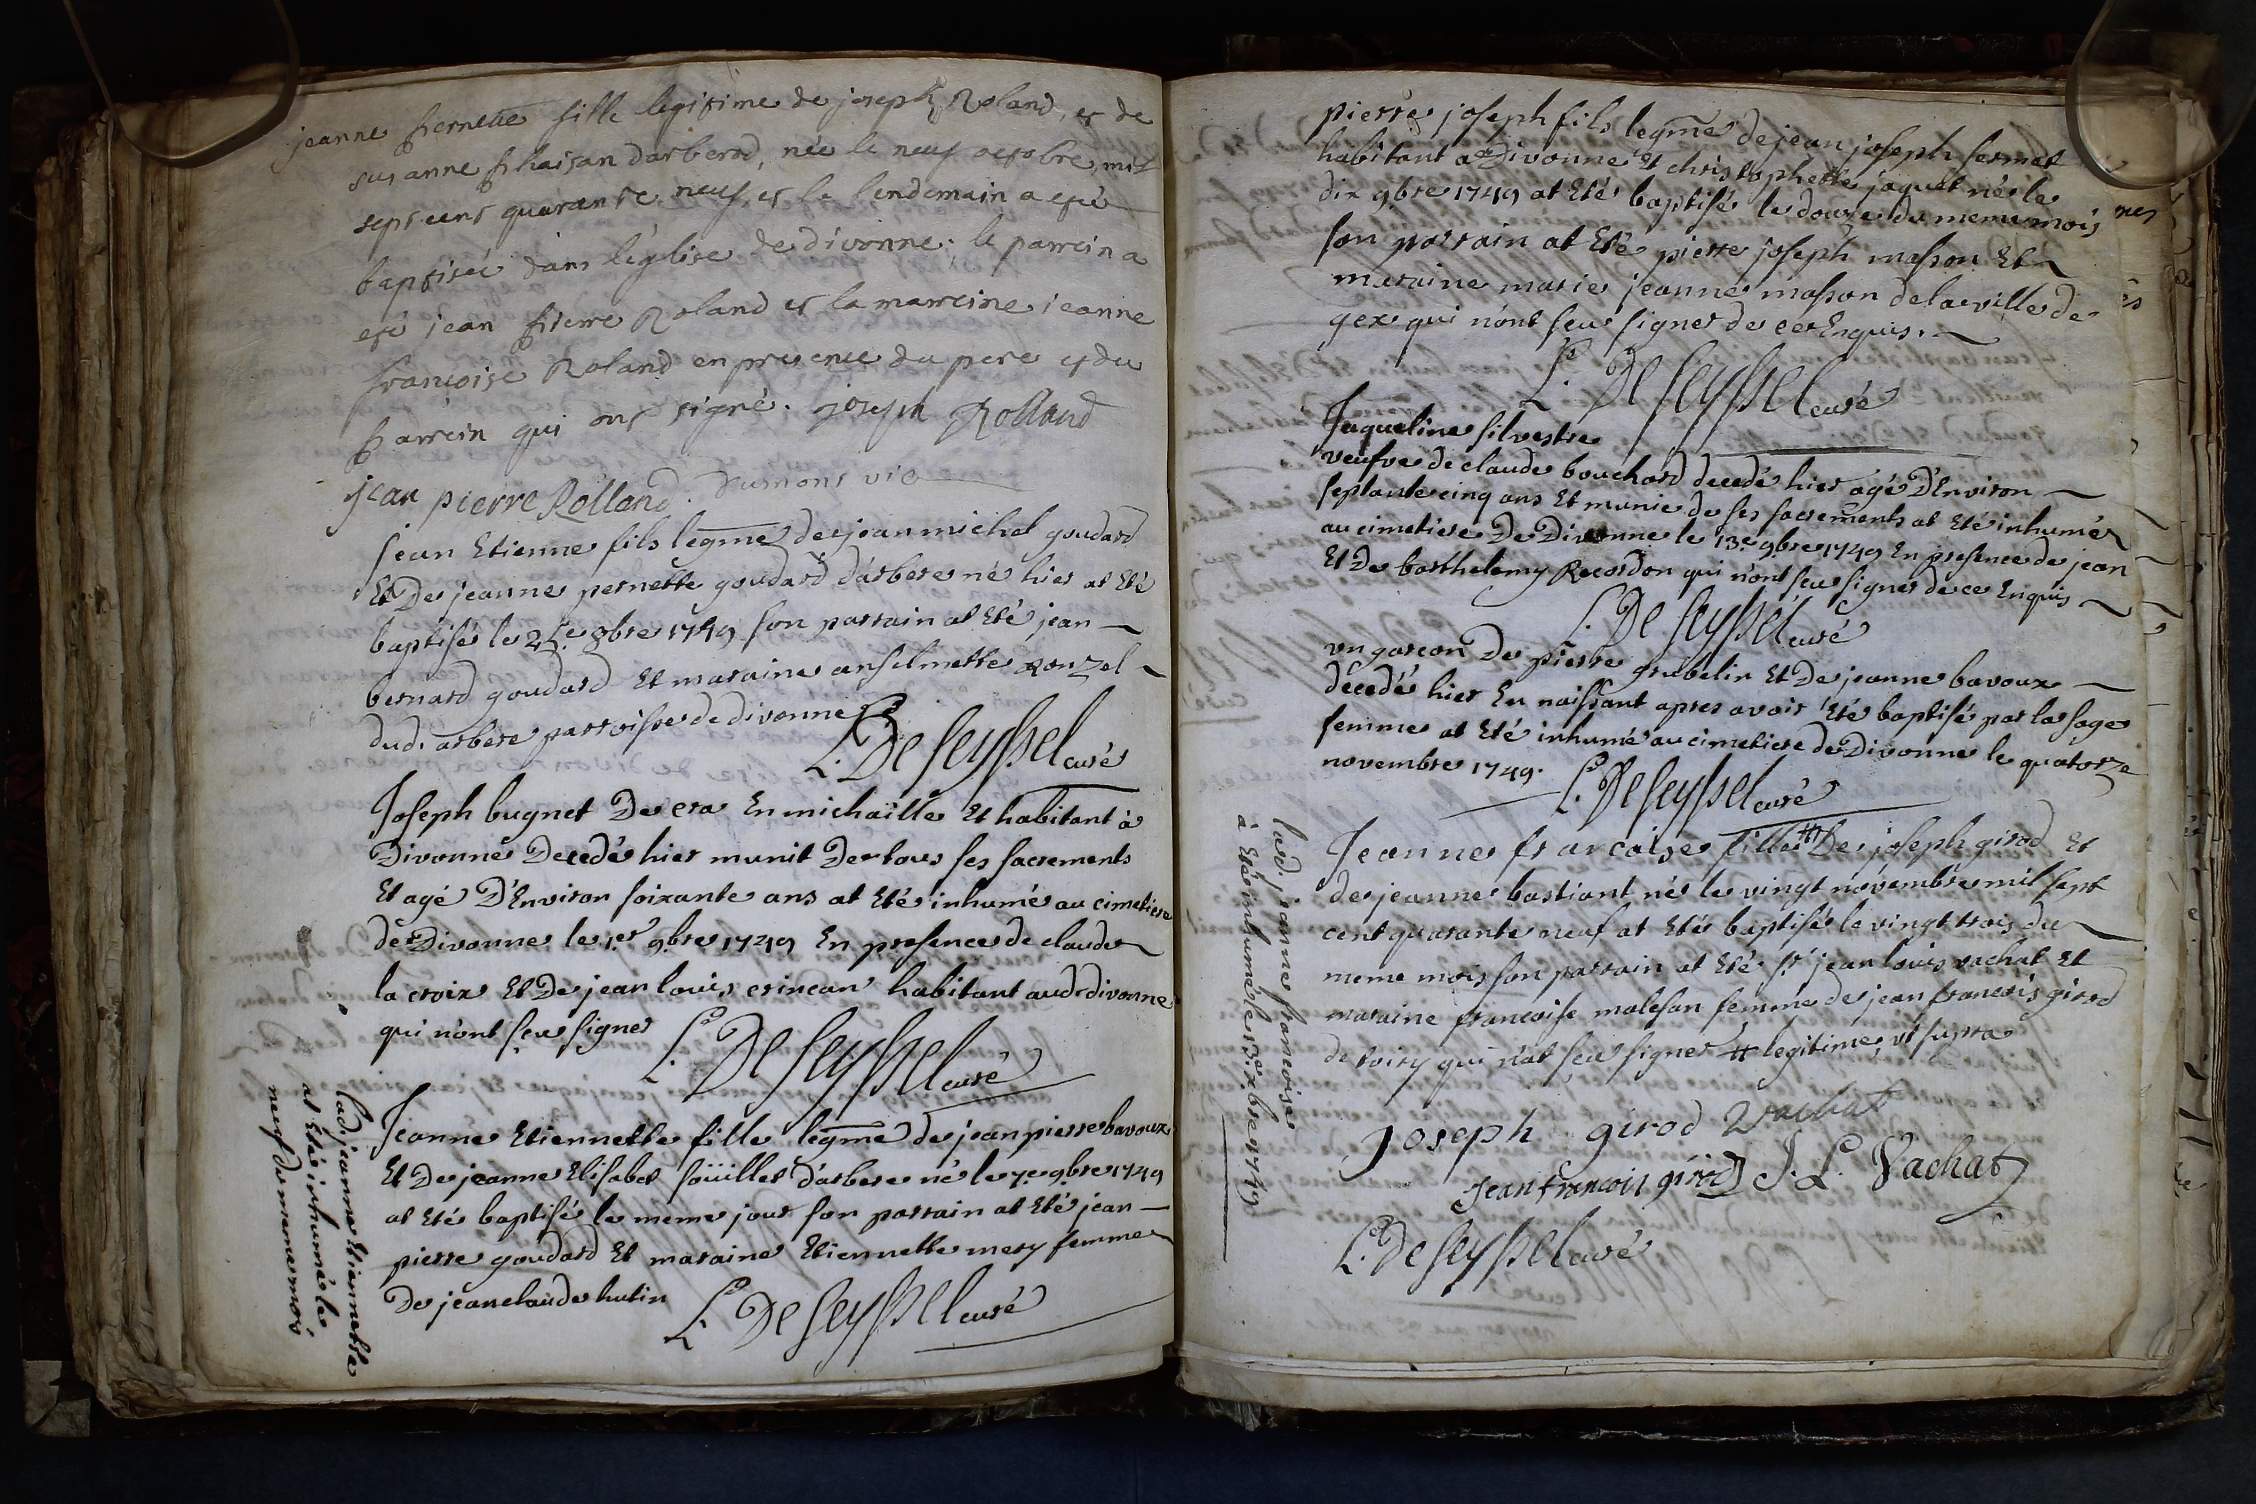 jeanne pernette fille legitime de joseph Roland, et de
susanne phaisan darberod, née le neuf octobre, mil
sept cent quarante neuf, et le lendemain a eté
baptisée dans l'église de divonne; le parrein a
eté jean pierre Roland et la marreine jeanne
françoise Roland en presence du pere et du
parrein qui ont signé. joseph Rolland
jean pierre Rolland. Dumont vic
jean Etienne fils legme de jean michel goudard
Et De jeanne pernette goudard d'arbere né hier at Eté
baptisé le 8bre 1749 son parrain at Eté jean
bernard goudard Et maraine anselmette ronzel
dud. arbere parroisse de divonne
L. De Seyssel curé
Joseph bugnet De cra En michaille Et habitant à
Divonne Decedé hier munit De tous ses sacrements
Et agé D'Environ soixante ans at Eté inhumé au cimetiere
de Divonne le 1er 9bre 1749 En presence de claude
la croix Et De jean louis crincan habitant aud. divonne
qui n'ont sçu signer L. De Seyssel curé
Jeanne Etiennette fille legme de jean pierre bavoux
Et De jeanne Elisabet soüilles d'arbere né le 7e 9bre 1749
at Eté baptisé le meme jour son parrain at Eté jean
pierre goudard Et maraine Etiennette mery femme
De jean claude hutin L. De Seyssel curé
lad. jeanne Etiennette
at Eté inhumé le
neuf du meme mois
pierre joseph fils legme de jean joseph fermat
habitant a Divonne Et christophette jaquet né le
dix 9bre 1749 at Eté baptisé le douze du meme mois
son parrain at Eté pierre joseph masson Et
maraine marie jeanne masson de la ville de
gex qui n'ont sçu signer de ce Enquis.
L. De Seyssel curé
Jaqueline silvestre
veufve de claude bouchard decedé hier agé D'Environ
septante cinq ans Et munie de ses sacrements at Eté inhumé
au cimetiere De Divonne le 13e 9bre 1749 En presence de jean
Et De barthelemy Recordon qui n'ont sçu signer de ce Enquis
L. De Seyssel curé
un garcon De pierre grubelin Et De jeanne bavoux
decedé hier En naissant apres avoir Eté baptisé par la sage
femme at Eté inhumé au cimetiere de Divonne le quatorze
novembre 1749. L. De Seyssel curé
Jeanne francoise fille # De joseph girod Et
de jeanne bastiant né le vingt novembre mil sept
cent quarante neuf at Eté baptisé le vingt trois du
meme mois son parrain at Eté Sr jean louis vachat Et
maraine francoise malesan femme de jean francois girod
de toiry qui n'at sçu signer # legitime, ut supra
Joseph girod Vachat
jean francois girod J. L. Vachat
L. De Seyssel curé
lad. jeanne francoise
à Eté inhumé le 13e xbre 1749